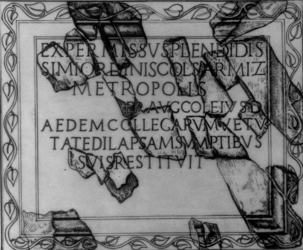 EXPERMISSVSPLENDIDIS
SIMIORDINISCOLSARMIZ
METROPOLIS
AVGCOLEIVSD
AEDEMCOLLEGARVMVETV
TATEDILAPSAMSVMPTIBVS
SVISRESTITVIT